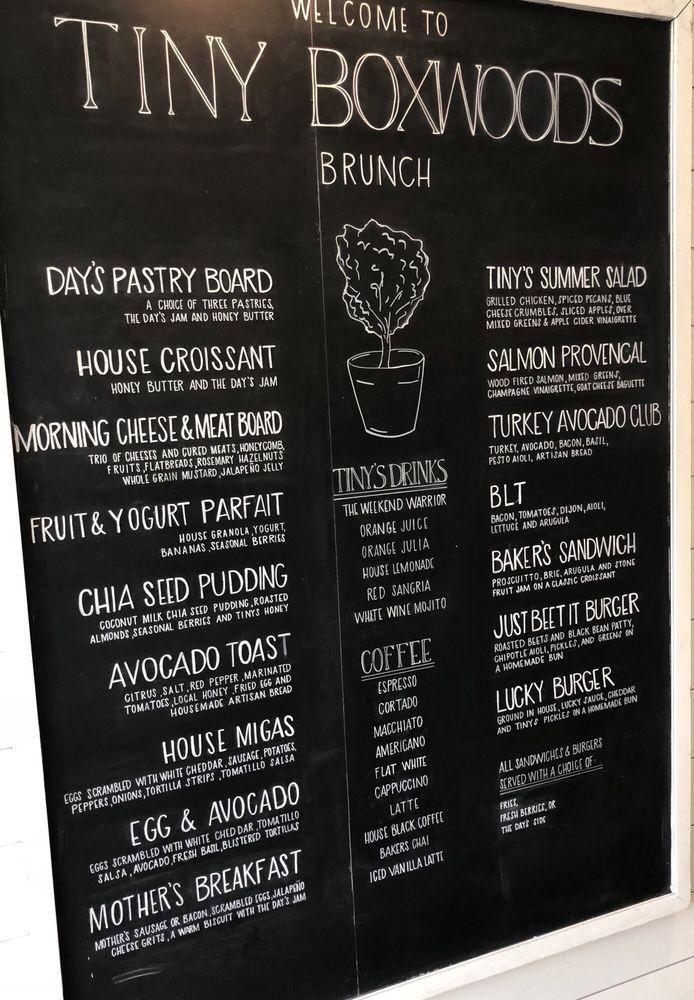 WELCOME TO
TINY BOXWOODS
BRUNCH
DAY'S PASTRY BOARD
A CHOICE OF THREE PASTRIES,
THE DAY'S JAM AND HONEY BUTTER
HOUSE CROISSANT
HONEY BUTTER AND THE DAY'S JAM
MORNING CHEESE & MEAT BOARD
TRIO OF CHEESES AND CURED MEATS, HONEYCOMB,
FRUITS, FLATBREADS, ROSEMARY HAZELNUTS
WHOLE GRAIN MUSTARD, JALAPEÑO JELLY
FRUIT & YOGURT PARFAIT
HOUSE GRANOLA, YOGURT,
BANANAS, SEASONAL BERRIES
CHIA SEED PUDDING
COCONUT MILK CHIA SEED PUDDING, ROASTED
ALMONDS, SEASONAL BERRIES AND TINYS HONEY
AVOCADO TOAST
CITRUS, SALT, RED PEPPER, MARINATED
TOMATOES, LOCAL HONEY, FRIED EGG AND
HOUSEMADE ARTISAN BREAD
HOUSE MIGAS
EGGS SCRAMBLED WITH WHITE CHEDDAR, SAUSAGE, POTATOES,
PEPPERS, ONIONS, TORTILLA STRIPS, TOMATILLO SALSA
EGG & AVOCADO
EGGS SCRAMBLED WITH WHITE CHEDDAR, TOMATILLO
SALSA, AVOCADO, FRESH BASIL, BLISTERED TORTILLAS
MOTHER'S BREAKFAST
MOTHER'S SAUSAGE OR BACON, SCRAMBLED EGGS, JALAPEÑO
CHEESE GRITS, A WARM BISCUIT WITH THE DAY'S JAM
TINY'S DRINKS
THE WEEKEND WARRIOR
ORANGE JUICE
ORANGE JULIA
HOUSE LEMONADE
RED SANGRIA
WHITE WINE MOJITO
COFFEE
ESPRESSO
CORTADO
MACCHIATO
AMERICANO
FLAT WHITE
CAPPUCCINO
LATTE
HOUSE BLACK COFFEE
BAKERS CHAI
ICED VANILLA LATTE
TINY'S SUMMER SALAD
GRILLED CHICKEN, SPICED PECANS, BLUE
CHEESE CRUMBLES, SLICED APPLES, OVER
MIXED GREENS & APPLE CIDER VINAIGRETTE
SALMON PROVENCAL
WOOD FIRED SALMON, MIXED GREENS,
CHAMPAGNE VINAIGRETTE, GOAT CHEESE BAGUETTE
TURKEY AVOCADO CLUB
TURKEY, AVOCADO, BACON, BASIL,
PESTO AIOLI, ARTISAN BREAD
BLT
BACON, TOMATOES, DIJON, AIOLI,
LETTUCE AND ARUGULA
BAKER'S SANDWICH
PROSCUITTO, BRIE, ARUGULA AND STONE
FRUIT JAM ON A CLASSIC CROISSANT
JUST BEET IT BURGER
ROASTED BEETS AND BLACK BEAN PATTY,
CHIPOTLE AIOLI, PICKLES, AND GREENS ON
A HOMEMADE BUN
LUCKY BURGER
GROUND IN HOUSE, LUCKY SAUCE, CHEDDAR
AND TINY'S PICKLES ON A HOMEMADE BUN
ALL SANDWICHES & BURGERS
SERVED WITH A CHOICE OF...
FRIES,
FRESH BERRIES, OR
THE DAY'S SIDE